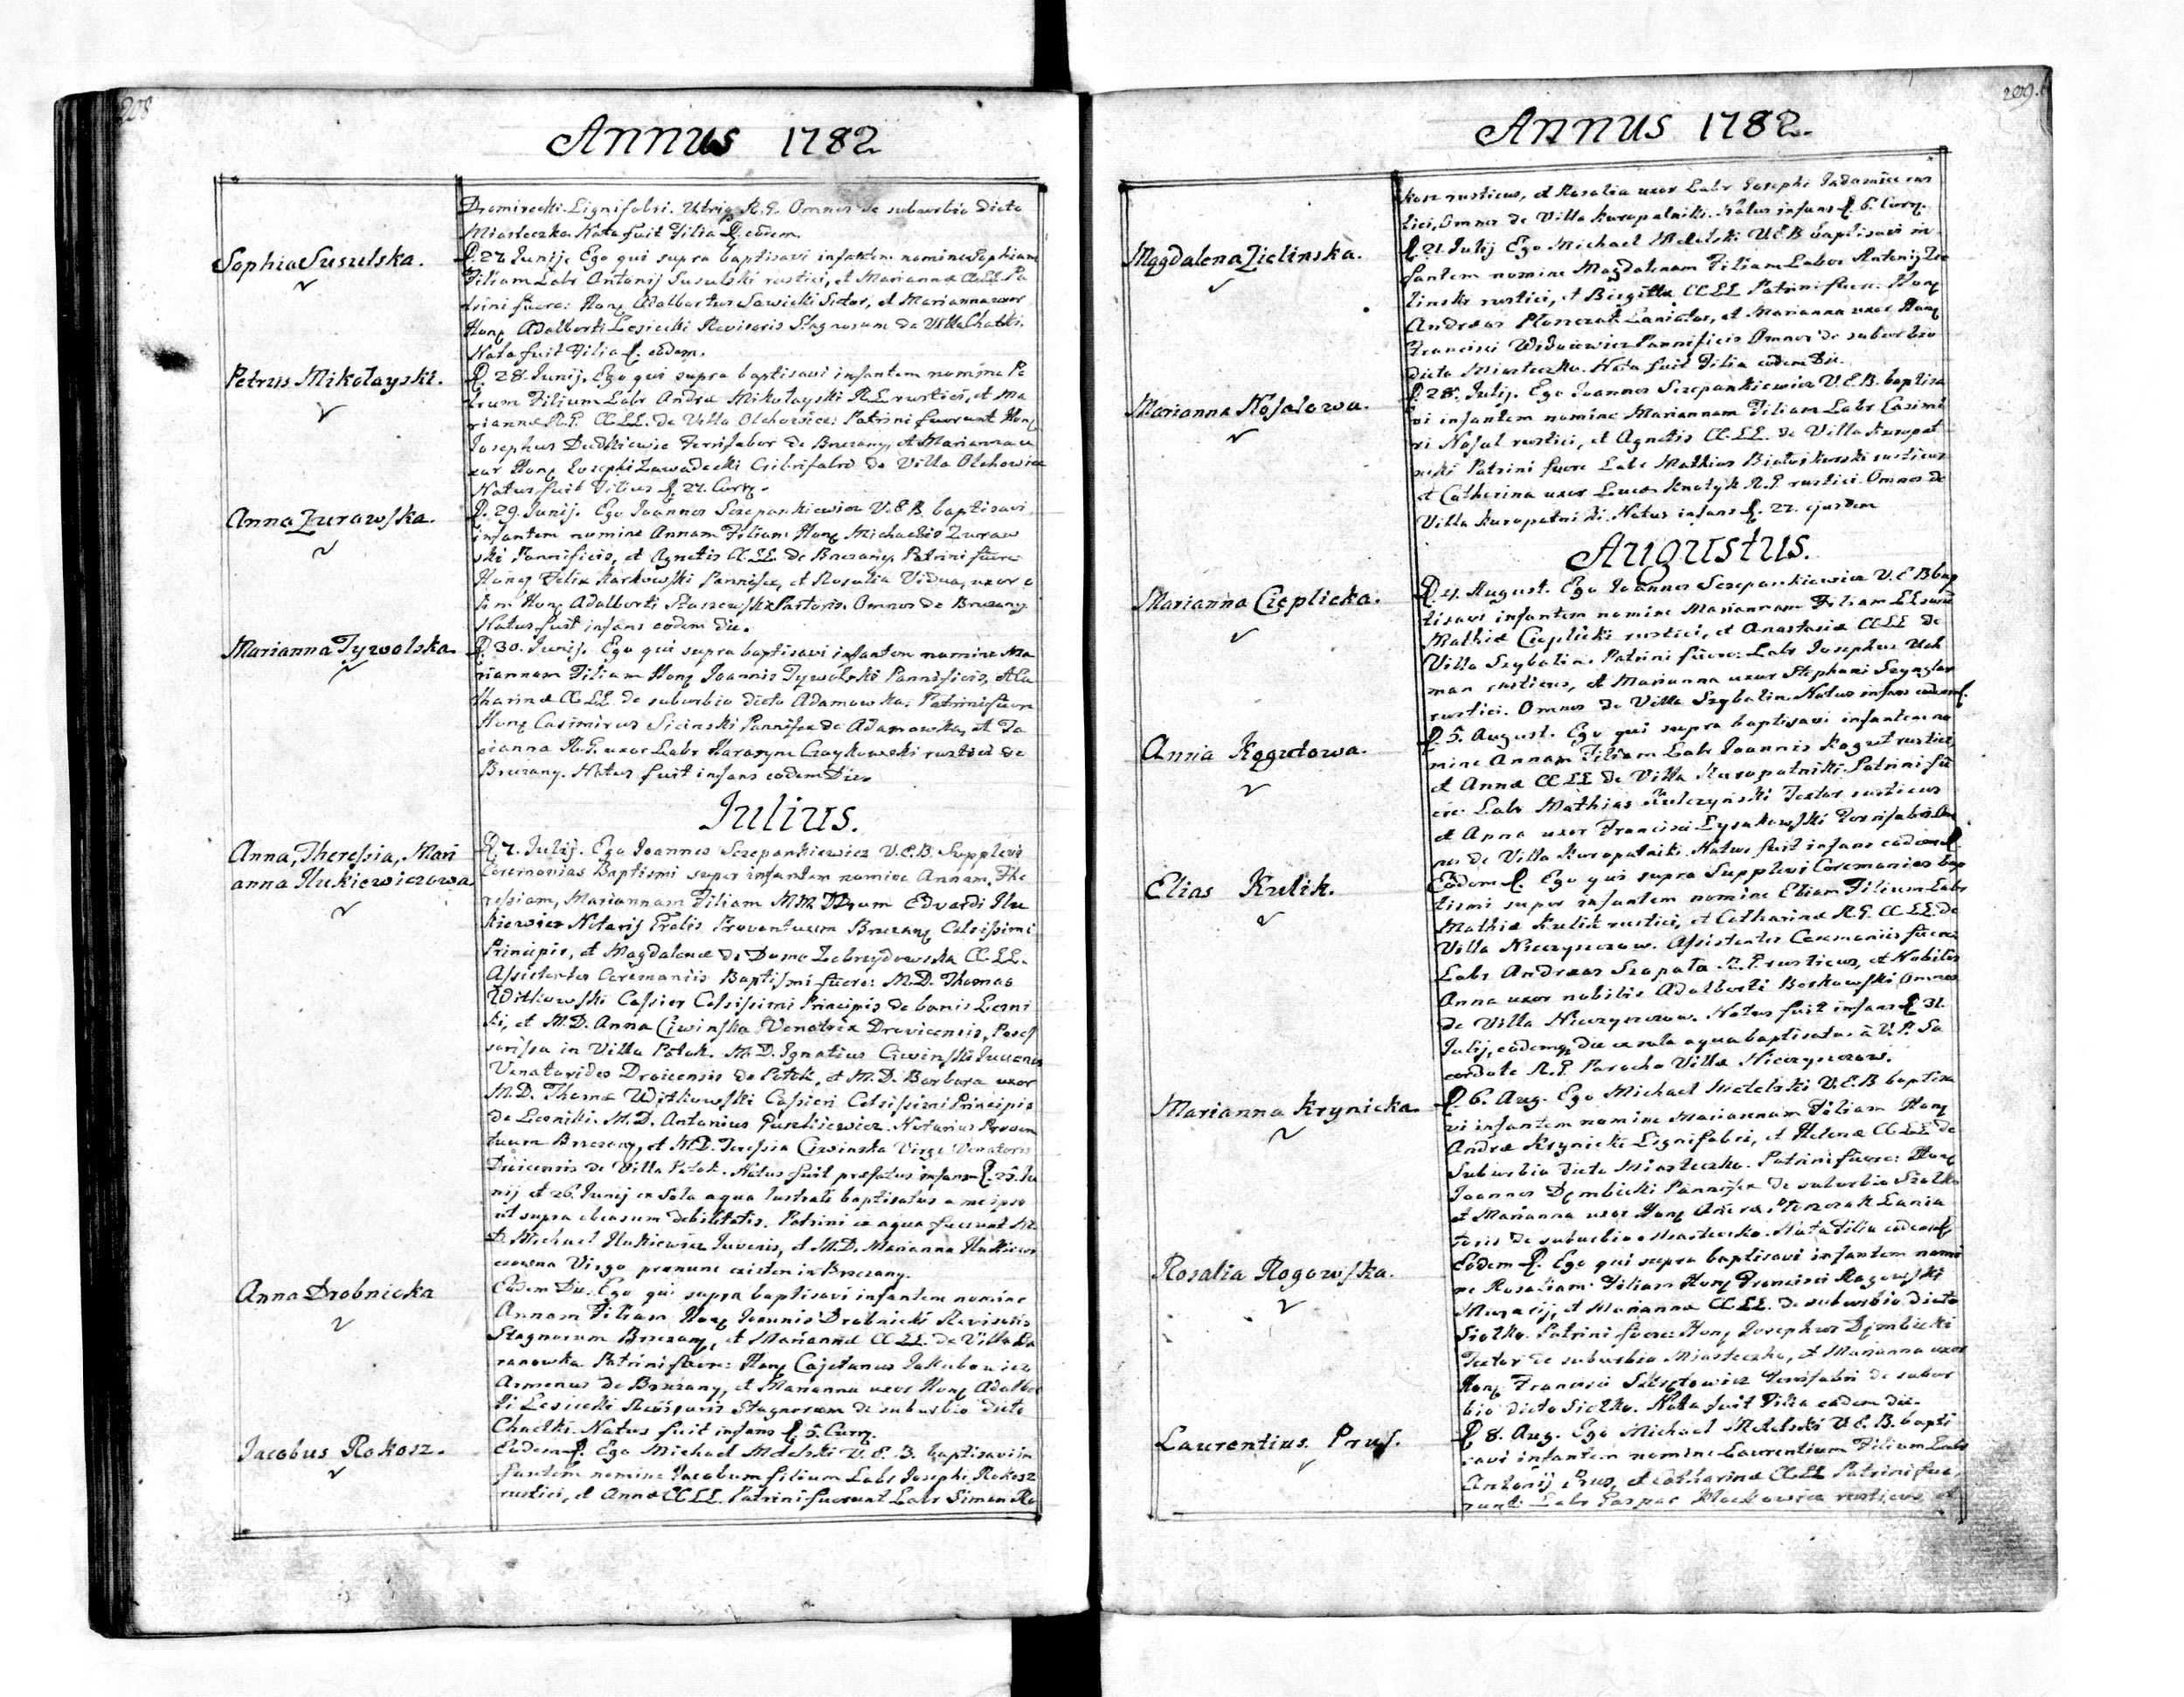 208
Annus 1782
Dromirecki Lignifabri. Utriq R.G. Omnes de suburbio dicto
Miasteczko Nata fuit Filia D. eodem.
Sophia Susulska.
D. 27 Junij. Ego qui supra baptisavi infantem nomine Sophiam
Filiam Labr Antonij Susulski rustici, et Mariannæ CC.LL. Pa
trini fuere: Hon Adalbertus Sawicki Sutor, et Marianna uxor
Hon Adalberti Lesiecki Revisoris Stagnorum de Villa Chatki.
Nata fuit Filia D. eodem.
Petrus Mikołayski.
D. 28. Junij. Ego qui supra baptisavi infantem nomine Pe
trum Filium Labr Andræ Mikołayski R.L. rustici, et Ma
riannæ R.G. CC.LL. de Villa Olchowice: Patrini fuerunt Hon
Josephus Dudkiewicz Ferrifaber de Brzezany, et Marianna u
xor Hon Josephi Zawadecki Cribrifabri de Villa Olchowice
Natus fuit Filius D. 27. Curr.
Anna Zurawska.
D. 29. Junij. Ego Joannes Szczepankiewicz V.E.B. baptisavi
infantem nomine Annam Filiam Hon Michaelis Zuraw
ski Pannificis, et Agnetis CC.LL. de Brzezany. Patrini fuere
Hon Felix Karkowski Pannifex, et Rosalia Vidua, uxor o
lim Hon Adalberti Staszewski Pistoris. Omnes de Brzezany
Natus fuit infans eodem die.
Marianna Tywolska
D. 30. Junij. Ego qui supra baptisavi infantem nomine Ma
riannam Filiam Hon Joannis Tywolski Pannificis, et Ca
tharinæ CC.LL. de suburbio dicto Adamowka. Patrini fuere
Hon Casimirus Sicinski Pannifex de Adamowka, et Ta
cianna R.G. uxor Labr Harasym Czaykowski rustici de
Brzezany. Natus fuit infans eodem Die.
Julius.
Anna, Theressia, Mari
anna Ilukiewiczowa
D. 7. Julij. Ego Joannes Szczepankiewicz V.E.B. Supplevi
Ceremonias Baptismi super infantem nomine Annam, The
ressiam, Mariannam Filiam MM. DDrum Edvardi Ilu
kiewicz Notarij Gralis Proventuum Brzezan Celsissimi
Principis, et Magdalenæ de Domo Zebrzydowska CC.LL.
Assistentes Ceremoniis Baptismi fuere: M.D. Thomas
Witkowski Cassier Celsissimi Principis de bonis Leśni
ki, et M.D. Anna Ciwinska Venatrix Drovicensis, Posses
sorissa in Villa Potok. M.D. Ignatius Ciwinski Juvenis
Venatorides Droicensis de Potok, et M.D. Barbara uxor
M.D. Thomæ Witkowski Cassieri Celsissimi Principis
de Leśniki. M.D. Antonius Paszkiewicz Notarius Proven
tuum Brzezany, et M.D. Teressia Ciwinska Virgo Venatoris
Droicensis de Villa Potok. Natus fuit præfatus infans D. 25. Ju
nij et 26. Junij ex sola aqua lustrali baptisatus a me ipso
ut supra ob casum debilitatis. Patrini ex aqua fuerunt M.
D. Michael Ilukiewicz Juvenis, et M.D. Marianna Ilukiewi
czowna Virgo pronunc existen in Brzezany.
Anna Drobnicka
Eodem Die. Ego qui supra baptisavi infantem nomine
Annam Filiam Hon Joannis Drobnicki Revisoris
Stagnorum Brzezany, et Mariannæ CC.LL. de Villa Ba
ranowka Patrini fuere: Hon Cajetanus Jakubowicz
Armenus de Brzezany, et Marianna uxor Hon Adalber
ti Lesiecki Revisoris Stagnorum de suburbio dicto
Chatki. Natus fuit infans D. 5. Curr.
Jacobus Rokosz.
Eodem D. Ego Michael Melelski V.E.B. baptisavi in
fantem nomine Jacobum filium Labr Josephi Rokosz
rustici, et Annæ CC.LL. Patrini fuerunt Labr Simon Ro
209.
Annus 1782.
kosz rusticus, et Rosalia uxor Labr Josephi Sadamicz rus
tici, Omnes de Villa Kuropatniki. Natus infans D. 6. Curr.
Magdalena Zielinska.
D. 21. Julij Ego Michael Melelski V.E.B baptisavi in
fantem nomine Magdalenam Filiam Labor Antonij Zie
linski rustici, et Birgittæ CC.LL Patrini fuere: Hon
Andreas Ptonczak Laniator, et Marianna uxor Hon
Francisci Widuiewicz Pannificis Omnes de suburbio
dicto Miasteczko. Nata fuit Filia eodem Die.
Marianna Nosalowa.
D. 28. Julij. Ego Joannes Szczepankiewicz V.E.B. baptisa
vi infantem nomine Mariannam Filiam Labr Casimi
ri Nosal rustici, et Agnetis CC.LL. de Villa Kuropat
niki Patrini fuere Labr Mathias Białoskurski rusticus
et Catherina uxor Lucæ Knatyk R.G rustici. Omnes de
Villa Kuropatniki. Natus infans D. 27. ejusdem
Augustus.
Marianna Cieplicka.
D. 4. August. Ego Joannes Szczepankiewicz V.E.B bap
tisavi infantem nomine Mariannam Filiam
Mathiæ Cieplicki rustici, et Anastasiæ CC.LL de
Villa Szybalin. Patrini fuere: Labr Josephus Uch
man rusticus, et Marianna uxor Stephani Szynglar
rustici. Omnes de Villa Szybalin. Natus infans eodem D.
Anna Kogutowa.
D. 5. August. Ego qui supra baptisavi infantem no
mine Annam Filiam Labr Joannis Kogut rustici,
et Annæ CC LL de Villa Kuropatniki. Patrini fu
ere Labr Mathias Kulczyński Textor rusticus
et Anna uxor Francisci Łysakowski Ferrifabri Om
nes de Villa Kuropatniki. Natus fuit infans eodem D.
Elias Kulik.
Eodem D. Ego qui supra Supplevi Ceremonias bap
tismi super infantem nomine Eliam Filium Labr
Mathiæ Kulik rustici, et Catharinæ R.G. CC.LL de
Villa Nieczyszczow. Assistentes Ceremoniis fuere
Labr Andreas Szapata R.G. rusticus, et Nobilis
Anna uxor nobilis Adalberti Borkowski Omnes
de Villa Nieczyszczow. Natus fuit infans D 31.
Julij, eodemq die ex sola aqua baptisatus à V.P. Sa
cerdote R.G. Parocho Villæ Nieczyszczow.
Marianna Krynicka
D. 6. Aug. Ego Michael Melelski V.E.B baptisa
vi infantem nomine Mariannam Filiam Hon
Andræ Krynicki Lignifabri, et Helenæ CC.LL de
Suburbio dicto Miasteczko. Patrini fuere: Hon
Joannes Dembicki Pannifex de suburbio Siołko
et Marianna uxor Hon Andreæ Ptonczak Lania
toris de suburbio Miasteczko. Nata Filia eodem D
Rosalia Rogowska.
Eodem D. Ego qui supra baptisavi infantem nomi
ne Rosaliam Filiam Hon Francisci Rogowski
Murarij, et Mariannæ CC.LL. de suburbio dicto
Siołko. Patrini fuere: Hon Josephus Dembicki
Textor de suburbio Miasteczko, et Marianna uxor
Hon Francisci Ferrifabri de subur
bio dicto Siołko. Nata fuit Filia eadem die.
Laurentius Prus.
D 8. Aug. Ego Michael Melelski V.E.B. bapti
savi infantem nomine Laurentium Filium Labr
Antonij Prus, et Catharinæ CC.LL Patrini fue
runt: Labr Gaspar Kłockowicz rusticus, et